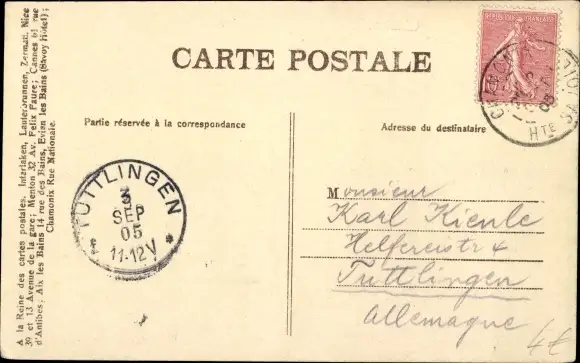 A la Reine des cartes postales. Interlaken, Lauterbrunnen, Zermatt, Nice
39 et 13 Avenue de la gare; Menton 32 Av. Felix Faure; Cannes 61 rue
d'Antibes; Aix les Bains 14 rue des Bains, Evian les Bains (Savoy Hôtel);
Chamonix Rue Nationale.
CARTE POSTALE
Partie réservée à la correspondance
Adresse du destinataire
REPUBLIQUE FRANÇAISE
05
HTE
TUTTLINGEN
3
SEP
05
11-12V
Monsieur
Karl Kienle
Helfereistr 4
Tuttlingen
Allemagne
4€